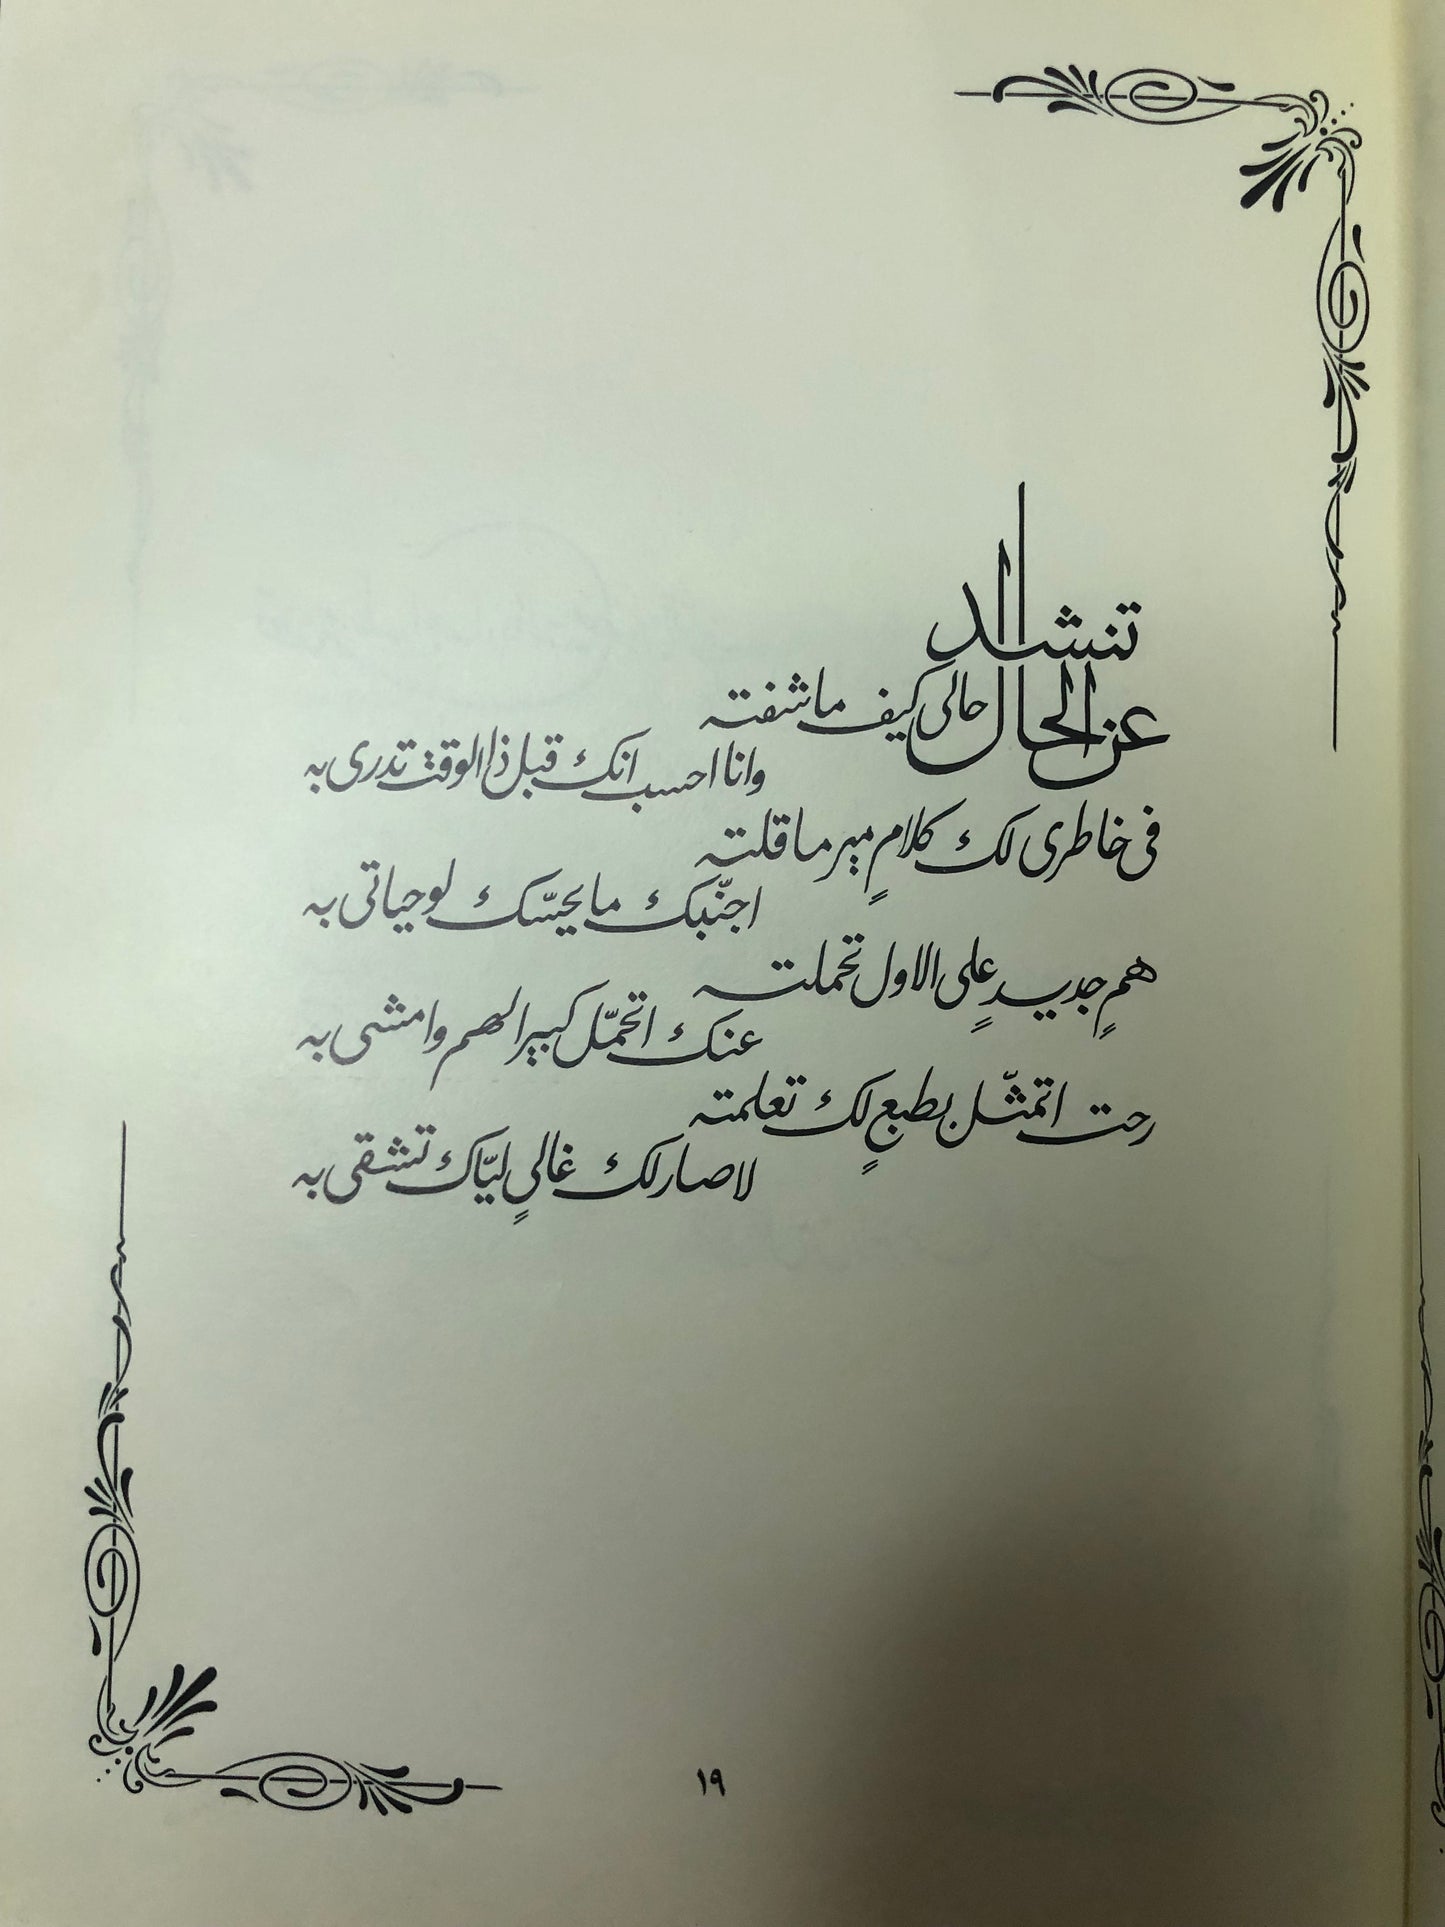 تنشد
عن الحال حالي كيف ما شفته
وانا احسب انك قبل ذا الوقت تدري به
في خاطري لك كلامٍ مير ما قلته
اجنّبك ما يحسّك لو حياتي به
همٍ جديدٍ على الاول تحملته
عنك اتحمّل كبير الهم وامشي به
رحت اتمثّل بطبعٍ لك تعلمته
لا صار لك غالي ليّاك تشقى به
١٩